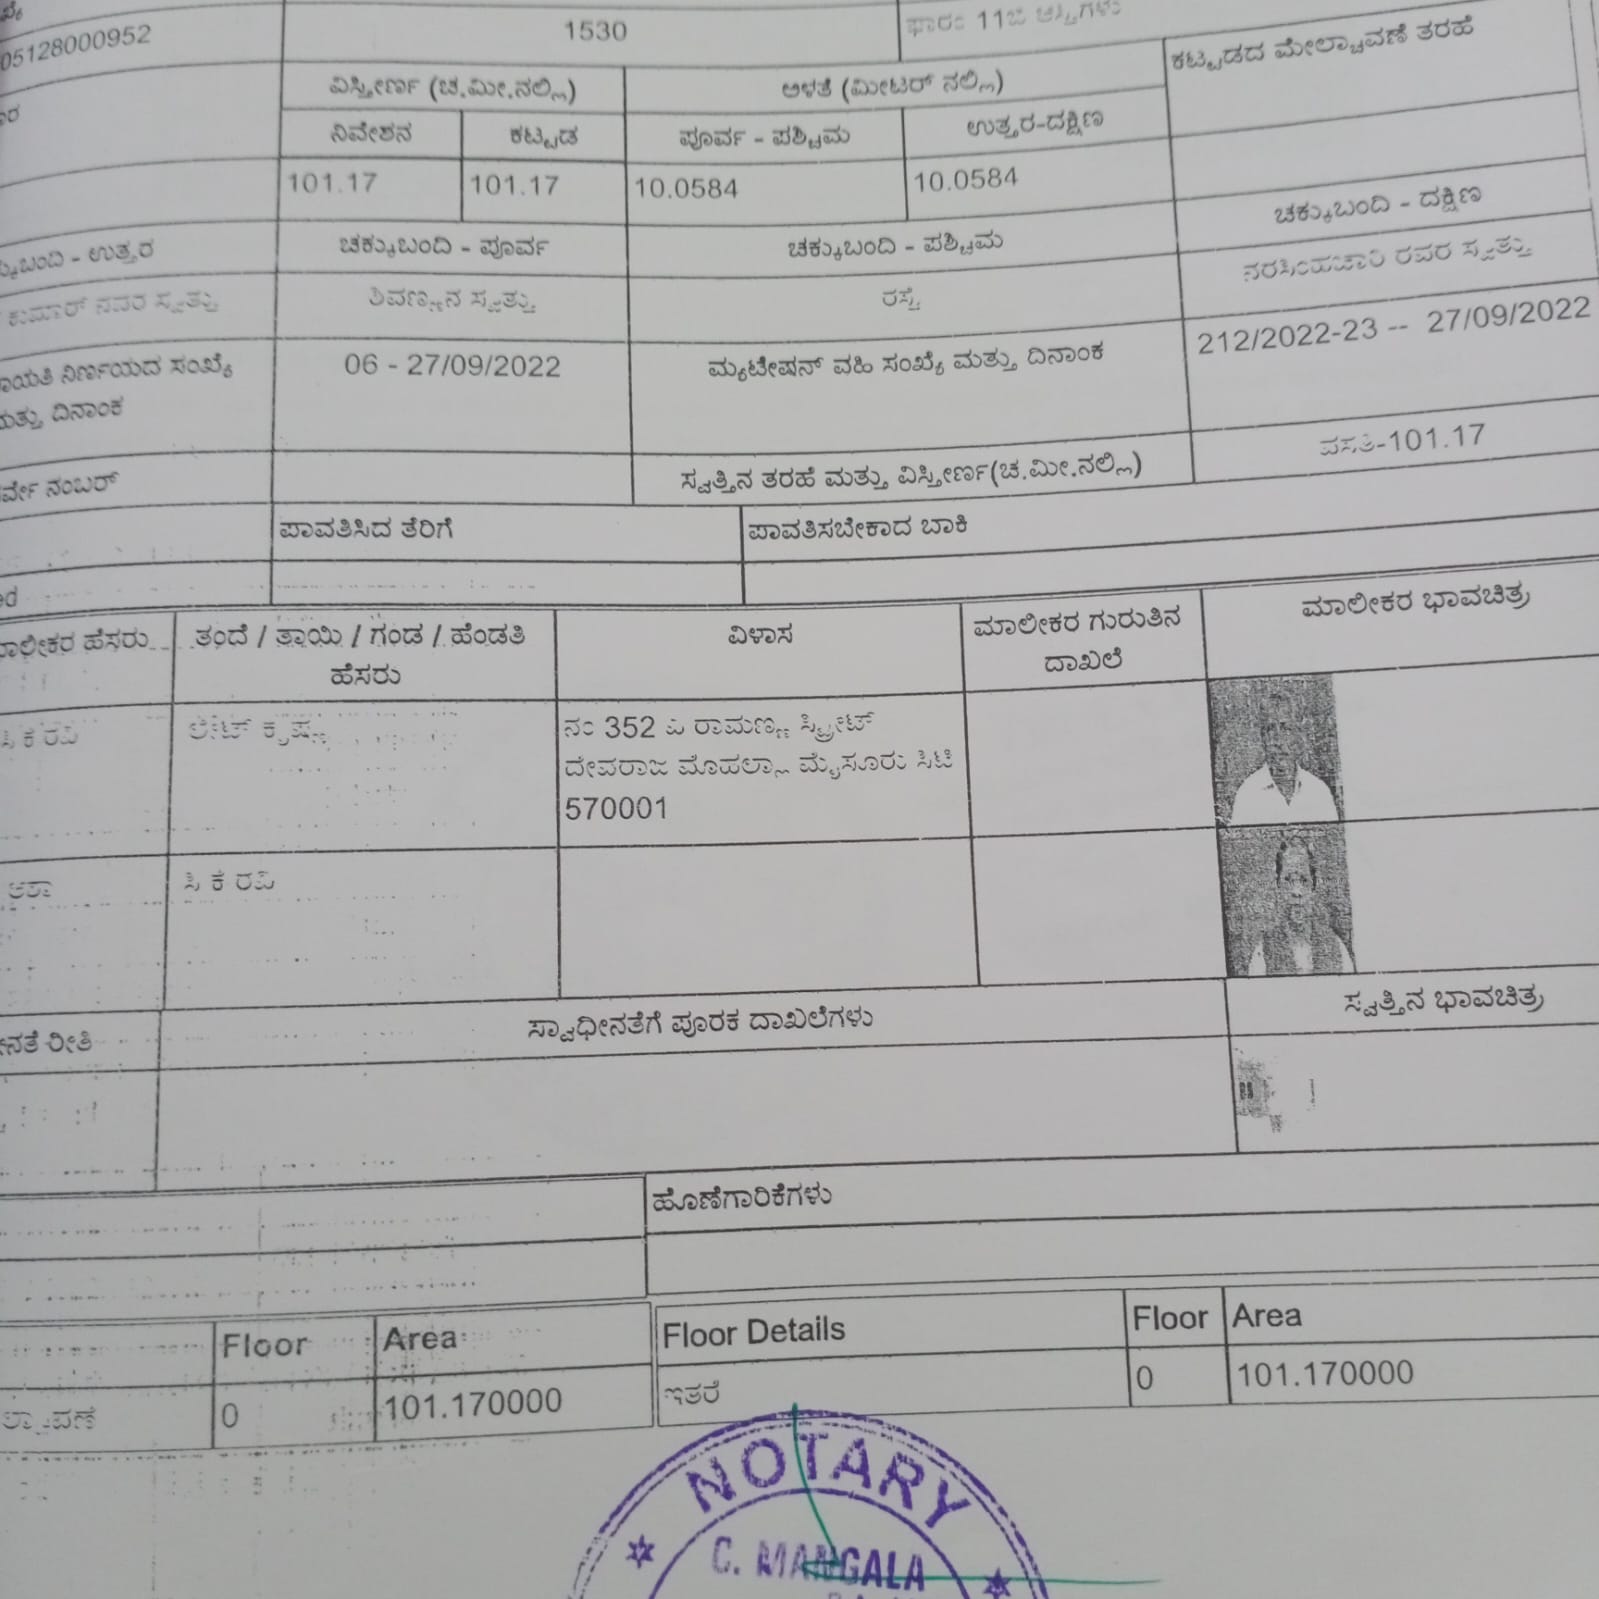 05128000952
1530
ಫಾರಂ 11ಬಿ ಆಸ್ತಿಗಳು
ವಿಸ್ತೀರ್ಣ (ಚ.ಮೀ.ನಲ್ಲಿ)
ಅಳತೆ (ಮೀಟರ್ ನಲ್ಲಿ)
ಕಟ್ಟಡದ ಮೇಲ್ಛಾವಣಿ ತರಹೆ
ನಿವೇಶನ
ಕಟ್ಟಡ
ಪೂರ್ವ - ಪಶ್ಚಿಮ
ಉತ್ತರ-ದಕ್ಷಿಣ
101.17
101.17
10.0584
10.0584
ಉತ್ತರ
ಚಕ್ಕುಬಂದಿ - ಪೂರ್ವ
ಚಕ್ಕುಬಂದಿ - ಪಶ್ಚಿಮ
ಚಕ್ಕುಬಂದಿ - ದಕ್ಷಿಣ
ಕುಮಾರ್ ನವರ ಸ್ವತ್ತು
ಶಿವಣ್ಣನ ಸ್ವತ್ತು
ರಸ್ತೆ
ನರಸಿಂಹಚಾರಿ ರವರ ಸ್ವತ್ತು
ನಿರ್ಣಯದ ಸಂಖ್ಯೆ
ಮತ್ತು ದಿನಾಂಕ
06 - 27/09/2022
ಮ್ಯುಟೇಷನ್ ವಹಿ ಸಂಖ್ಯೆ ಮತ್ತು ದಿನಾಂಕ
212/2022-23 -- 27/09/2022
ನಂಬರ್
ಸ್ವತ್ತಿನ ತರಹೆ ಮತ್ತು ವಿಸ್ತೀರ್ಣ(ಚ.ಮೀ.ನಲ್ಲಿ)
ವಸತಿ-101.17
ಪಾವತಿಸಿದ ತೆರಿಗೆ
ಪಾವತಿಸಬೇಕಾದ ಬಾಕಿ
ಮಾಲೀಕರ ಹೆಸರು
ತಂದೆ / ತಾಯಿ / ಗಂಡ / ಹೆಂಡತಿ
ಹೆಸರು
ವಿಳಾಸ
ಮಾಲೀಕರ ಗುರುತಿನ
ದಾಖಲೆ
ಮಾಲೀಕರ ಭಾವಚಿತ್ರ
ಸಿ ಕೆ ರವಿ
ಲೇಟ್ ಕೃಷ್ಣ
ನಂ 352 ಎ ರಾಮಣ್ಣ ಸ್ಟ್ರೀಟ್
ದೇವರಾಜ ಮೊಹಲ್ಲಾ ಮೈಸೂರು ಸಿಟಿ
570001
ಆಶಾ
ಸಿ ಕೆ ರವಿ
ರೀತಿ
ಸ್ವಾಧೀನತೆಗೆ ಪೂರಕ ದಾಖಲೆಗಳು
ಸ್ವತ್ತಿನ ಭಾವಚಿತ್ರ
ಹೊಣೆಗಾರಿಕೆಗಳು
Floor
Area
Floor Details
Floor
Area
0
101.170000
ಇತರೆ
0
101.170000
NOTARY
C. MANGALA